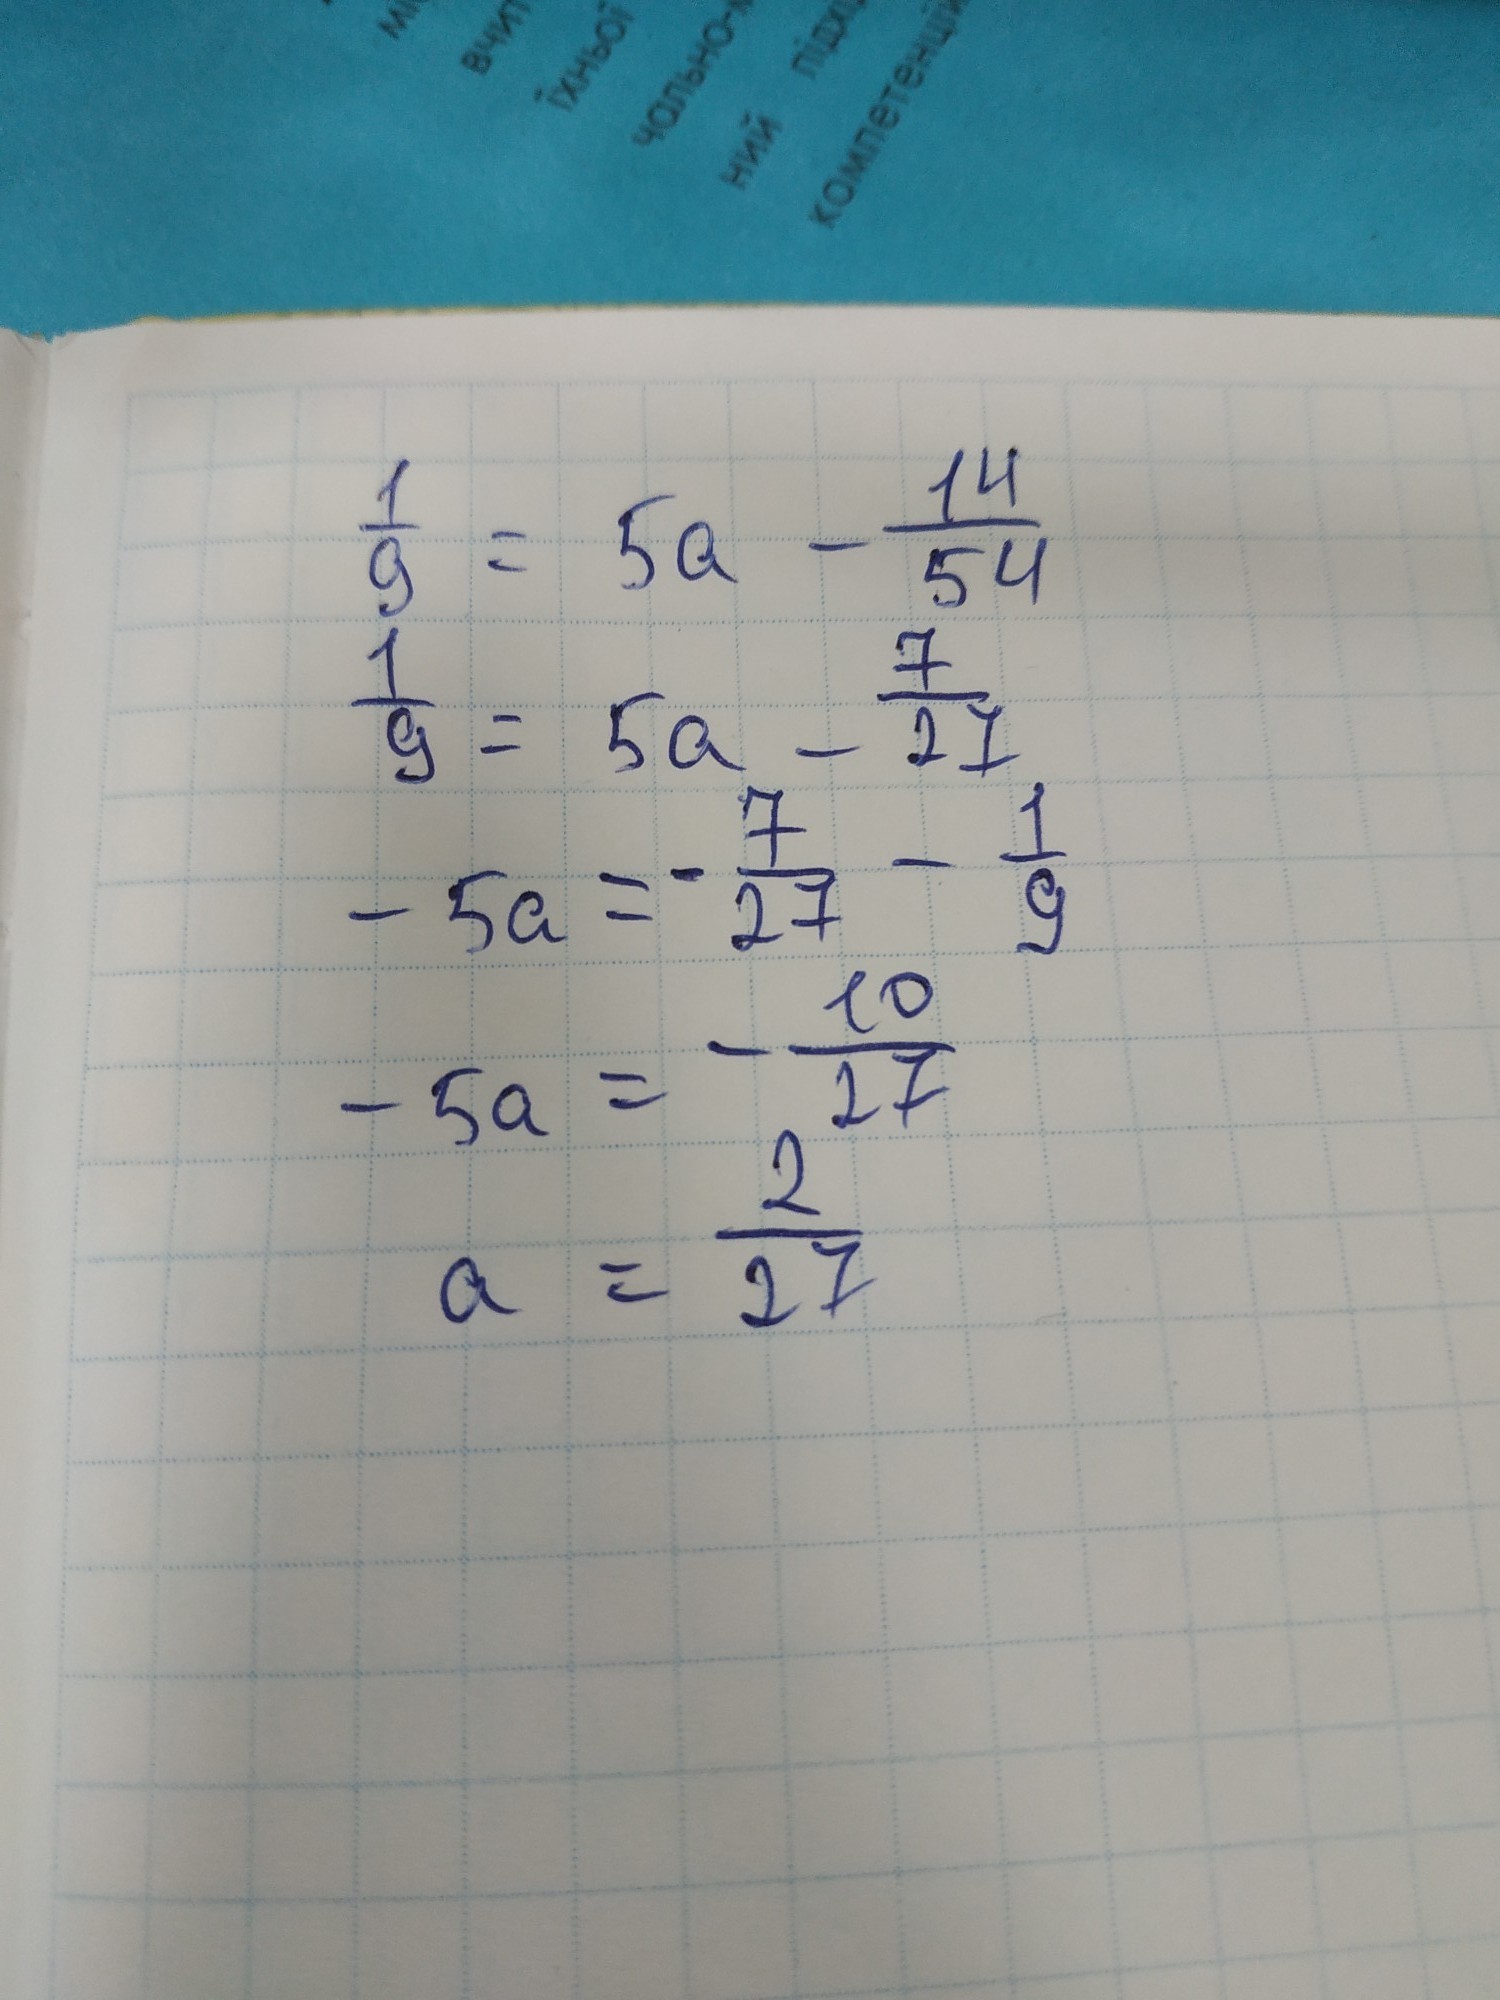 вчит
їхньої
чально-м
ний підхі
компетенцій
1/9 = 5a - 14/54
1/9 = 5a - 7/27
- 5a = - 7/27 - 1/9
- 5a = - 10/27
a = 2/27